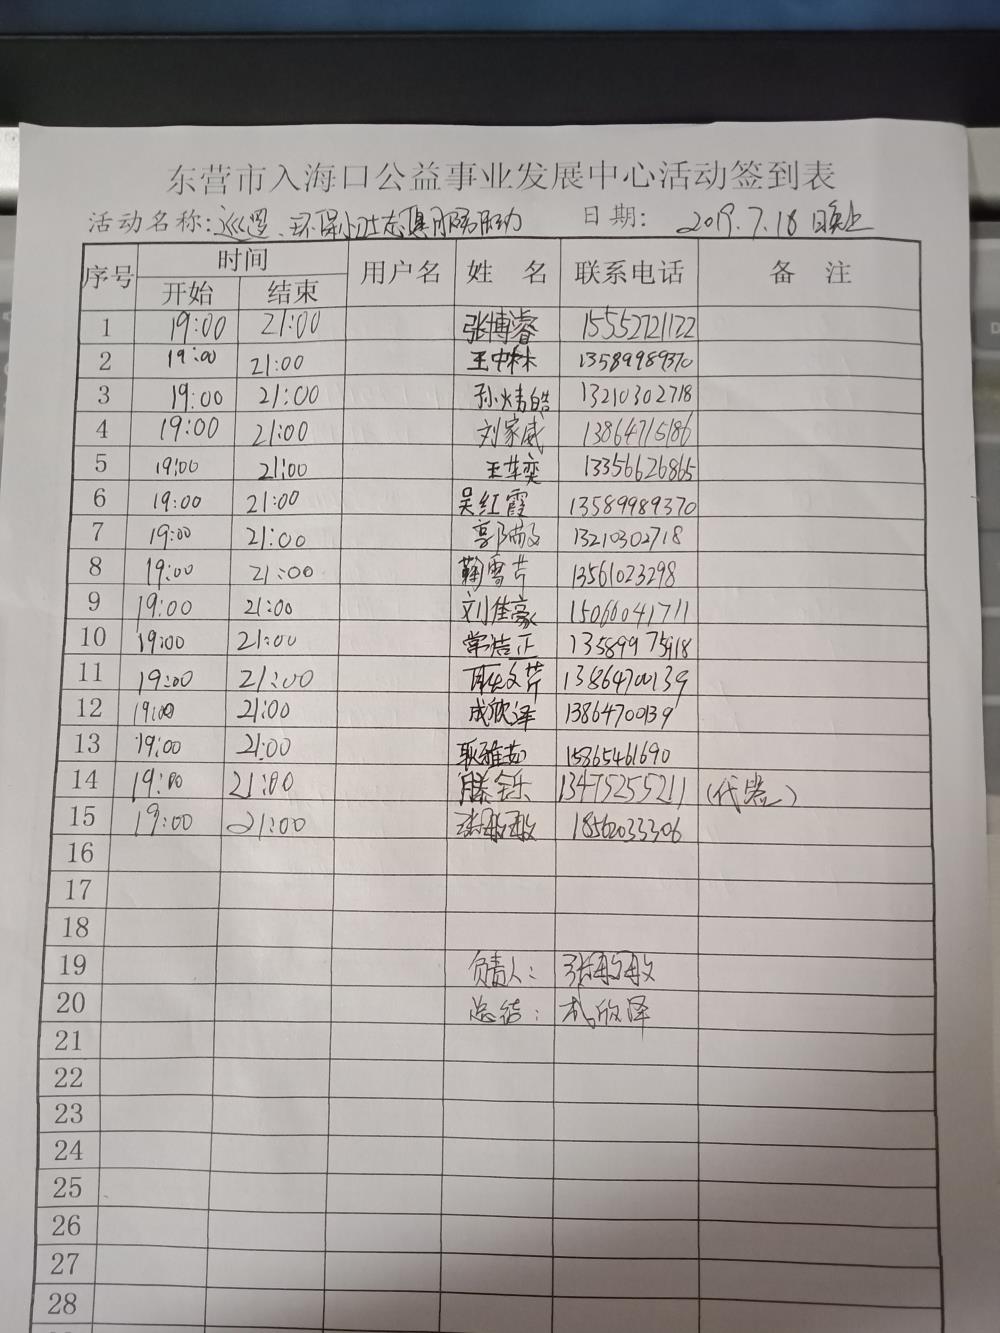 东营市入海口公益事业发展中心活动签到表
活动名称: 巡逻、环保小卫士志愿服务活动 日期: 2019.7.18日晚上
序号 时间 用户名 姓名 联系电话 备注
开始 结束
1 19:00 21:00 张博睿 15552721122
2 19:00 21:00 王中林 13589989370
3 19:00 21:00 孙炜皓 13210302718
4 19:00 21:00 刘家威 13864715186
5 19:00 21:00 王苹奕 13356626865
6 19:00 21:00 吴红霞 13589989370
7 19:00 21:00 13210302718
8 19:00 21:00 鞠雪芹 13561023298
9 19:00 21:00 刘佳豪 15066041711
10 19:00 21:00 常浩正 13589975918
11 19:00 21:00 13864700139
12 19:00 21:00 成欣泽 13864700139
13 19:00 21:00 耿雅茹 15865461690
14 19:00 21:00 滕铄 13475255211 (代签)
15 19:00 21:00 张敏敏 18562033306
16
17
18
19 负责人: 张敏敏
20 总结: 成欣泽
21
22
23
24
25
26
27
28